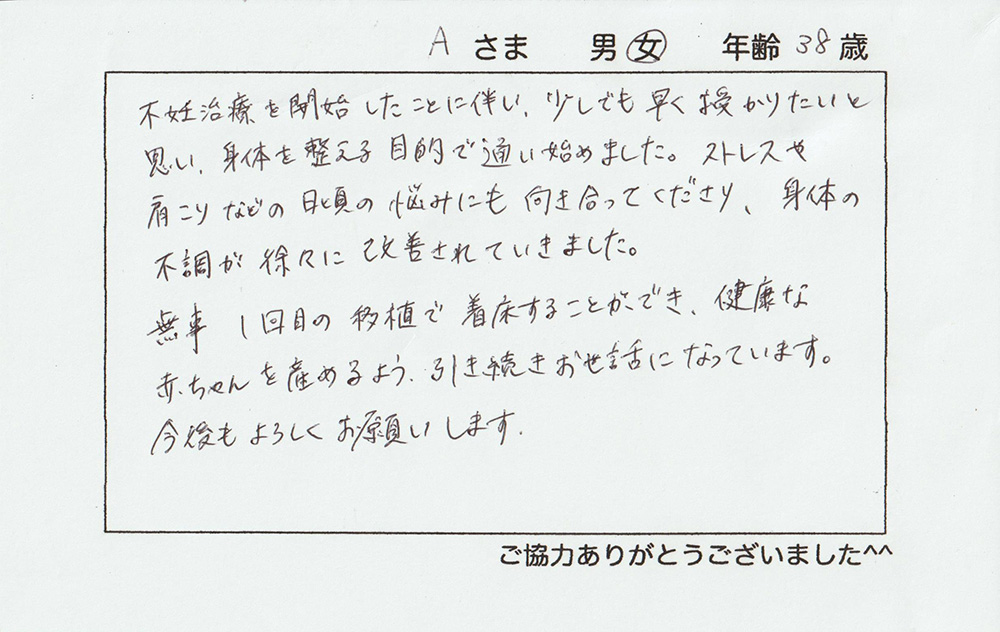 A さま 男 女 年齢 38 歳
不妊治療を開始したことに伴い、少しでも早く授かりたいと
思い、身体を整える目的で通い始めました。ストレスや
肩こりなどの日頃の悩みにも向き合ってくださり、身体の
不調が徐々に改善されていきました。
無事 1回目の移植で着床することができ、健康な
赤ちゃんを産めるよう、引き続きお世話になっています。
今後もよろしくお願いします.
ご協力ありがとうございました^^